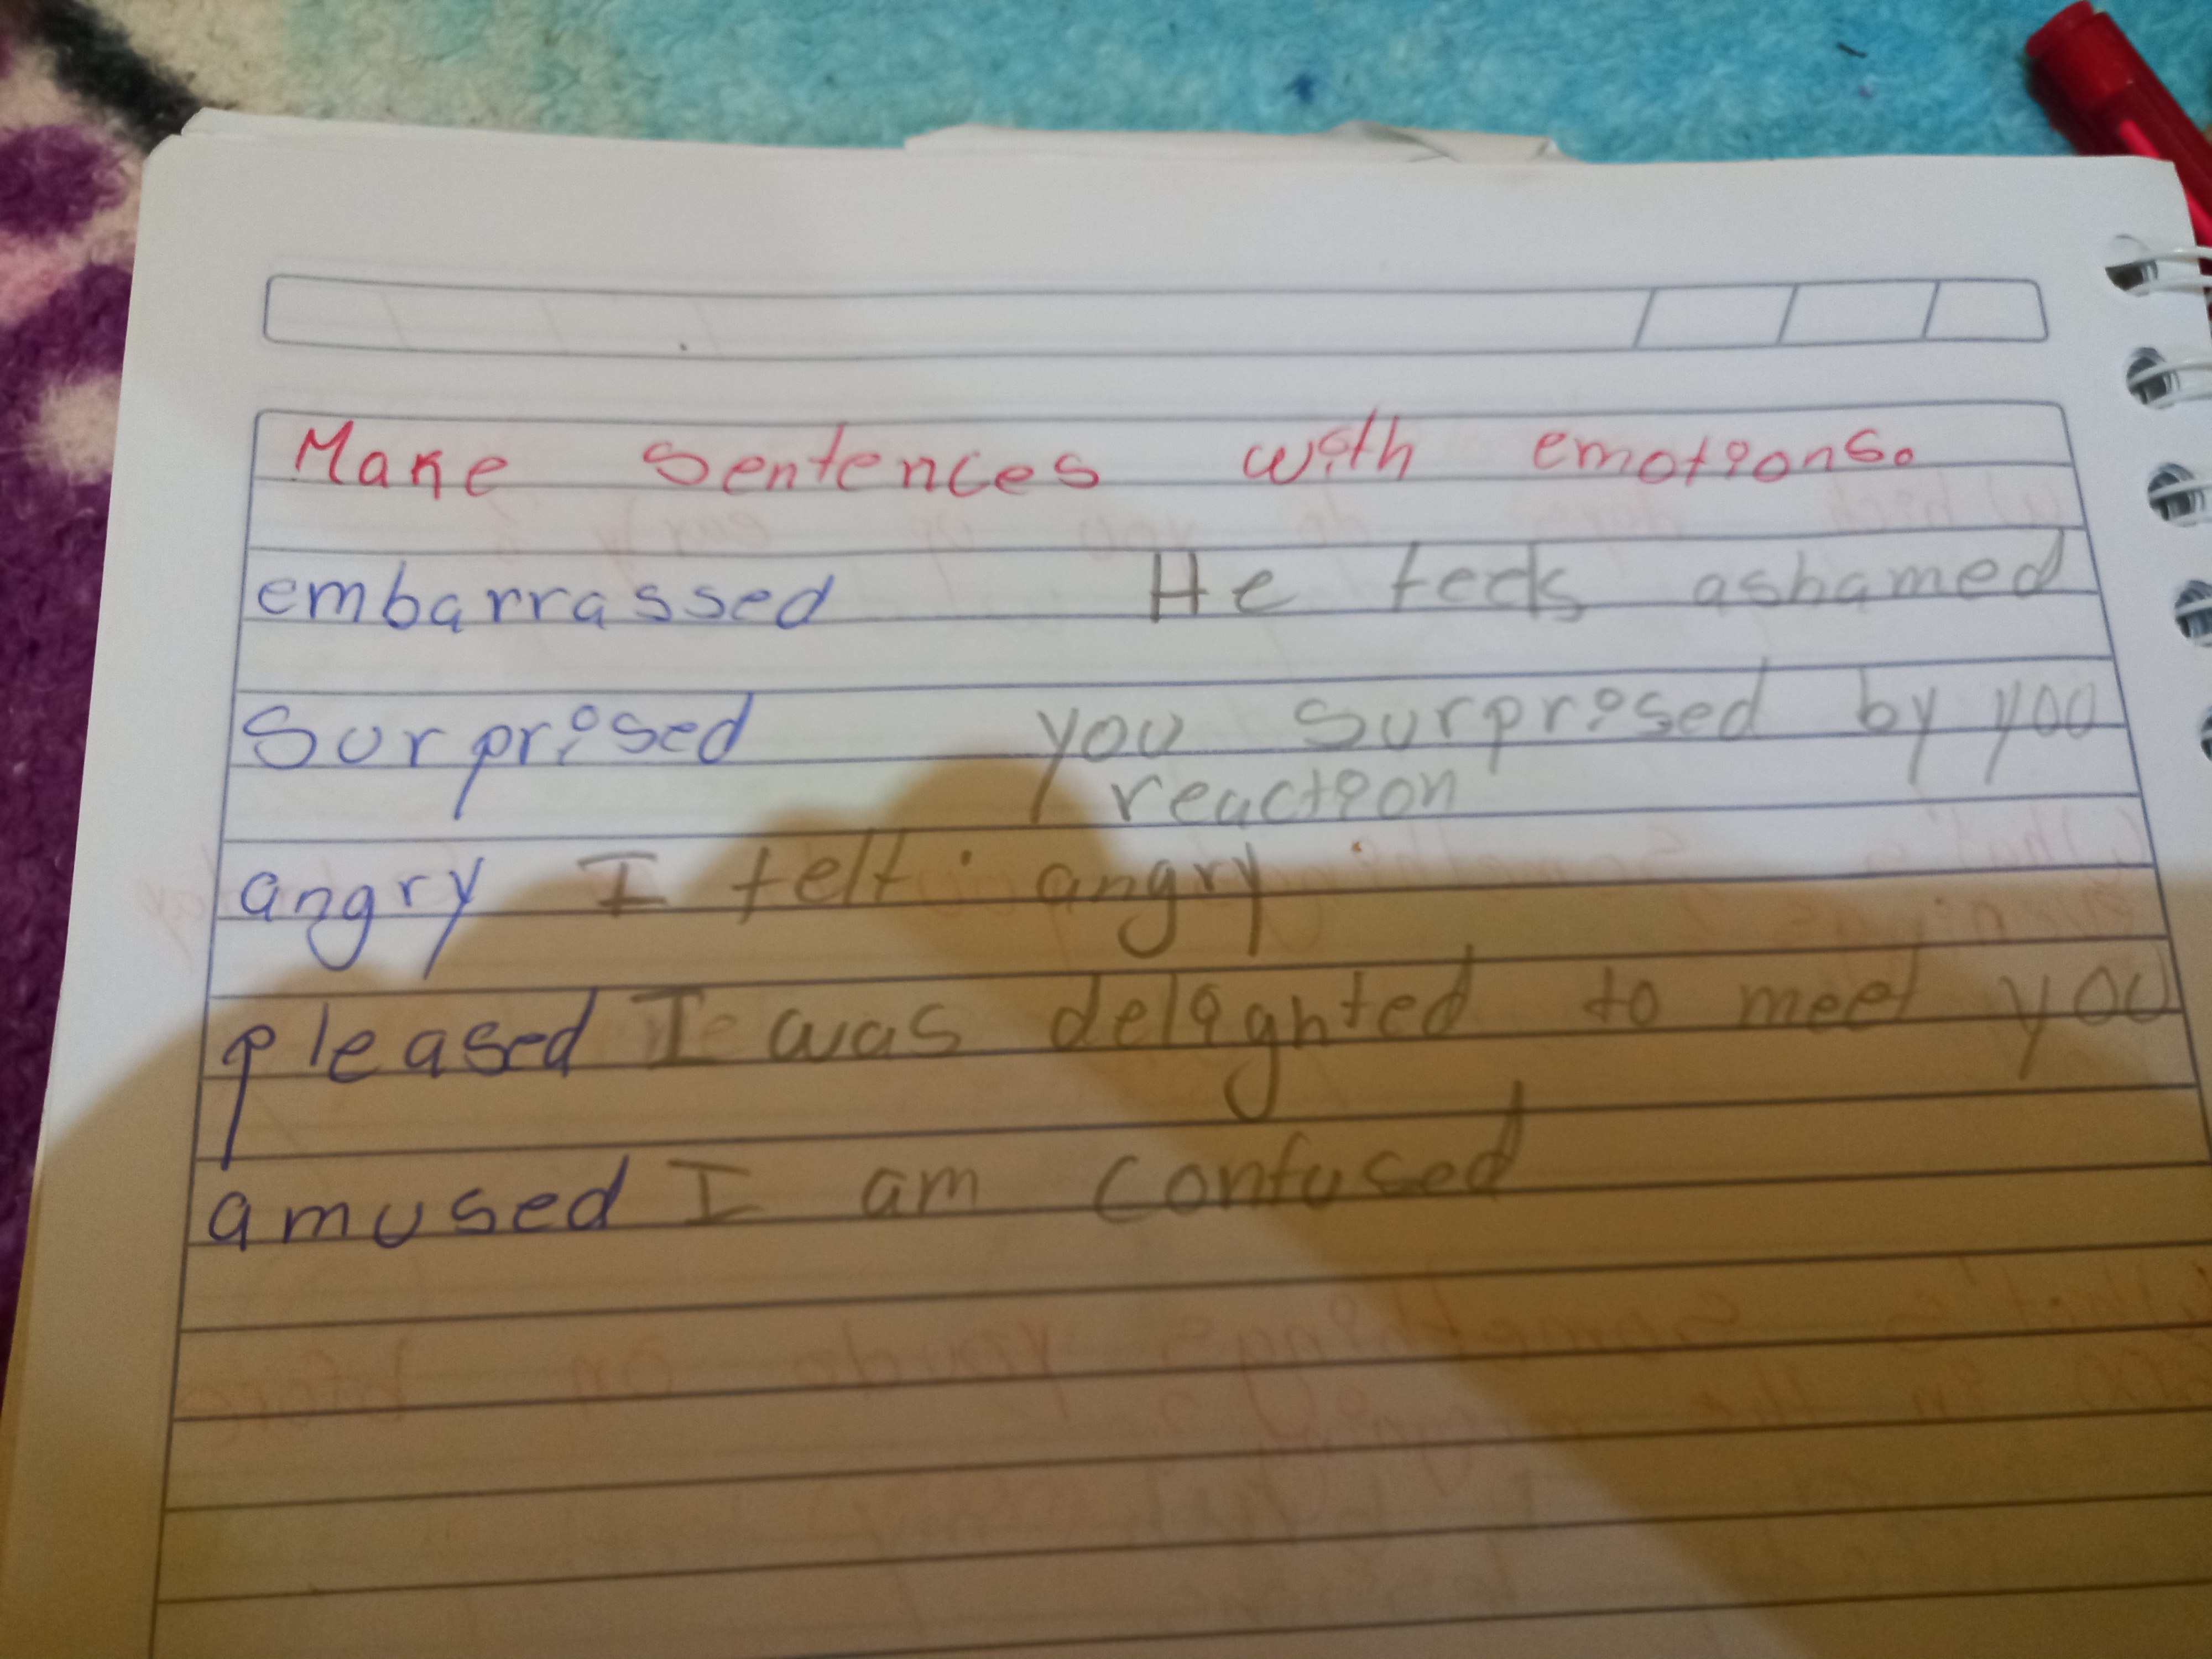 Make sentences with emotions.
embarrassed He feels ashamed
Surprised you surprised by you
reaction
angry I felt angry
pleased I was delighted to meet you
amused I am confused